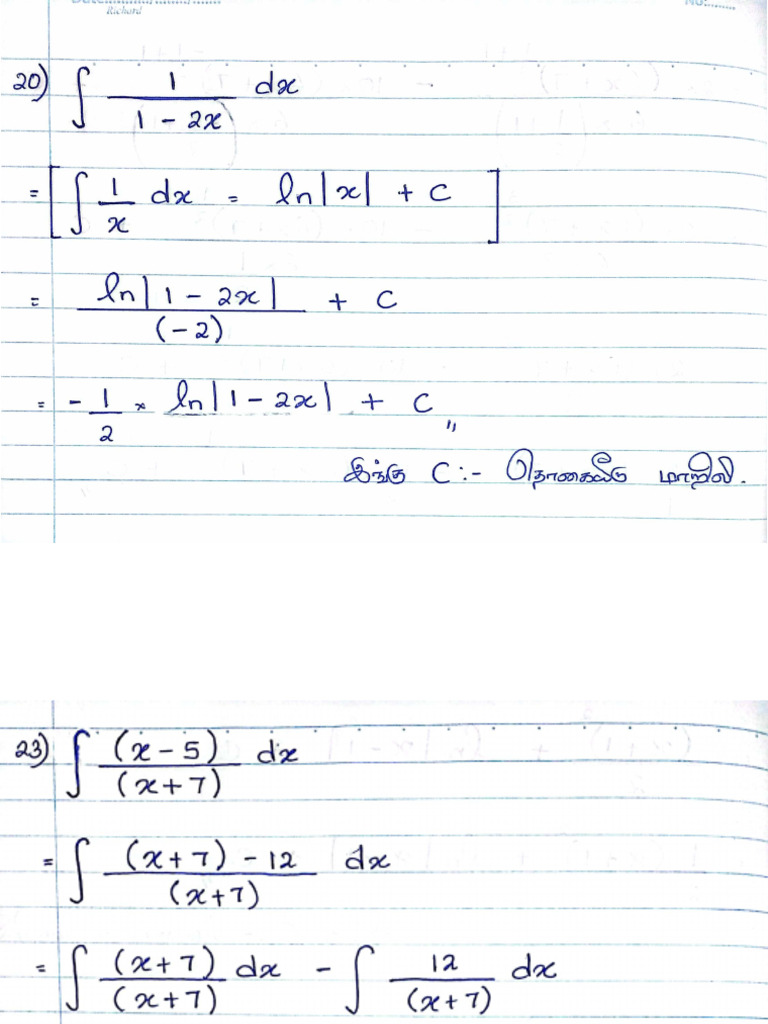 Richard
No:.......
20) ∫ 1/(1 - 2x) dx
= [ ∫ 1/x dx = ln|x| + C ]
= ln|1 - 2x|/(-2) + C
= - 1/2 × ln|1 - 2x| + C ,,
இங்கு C :- தொகையீடு மாறிலி.
23) ∫ (x - 5)/(x + 7) dx
= ∫ (x + 7) - 12/(x + 7) dx
= ∫ (x + 7)/(x + 7) dx - ∫ 12/(x + 7) dx